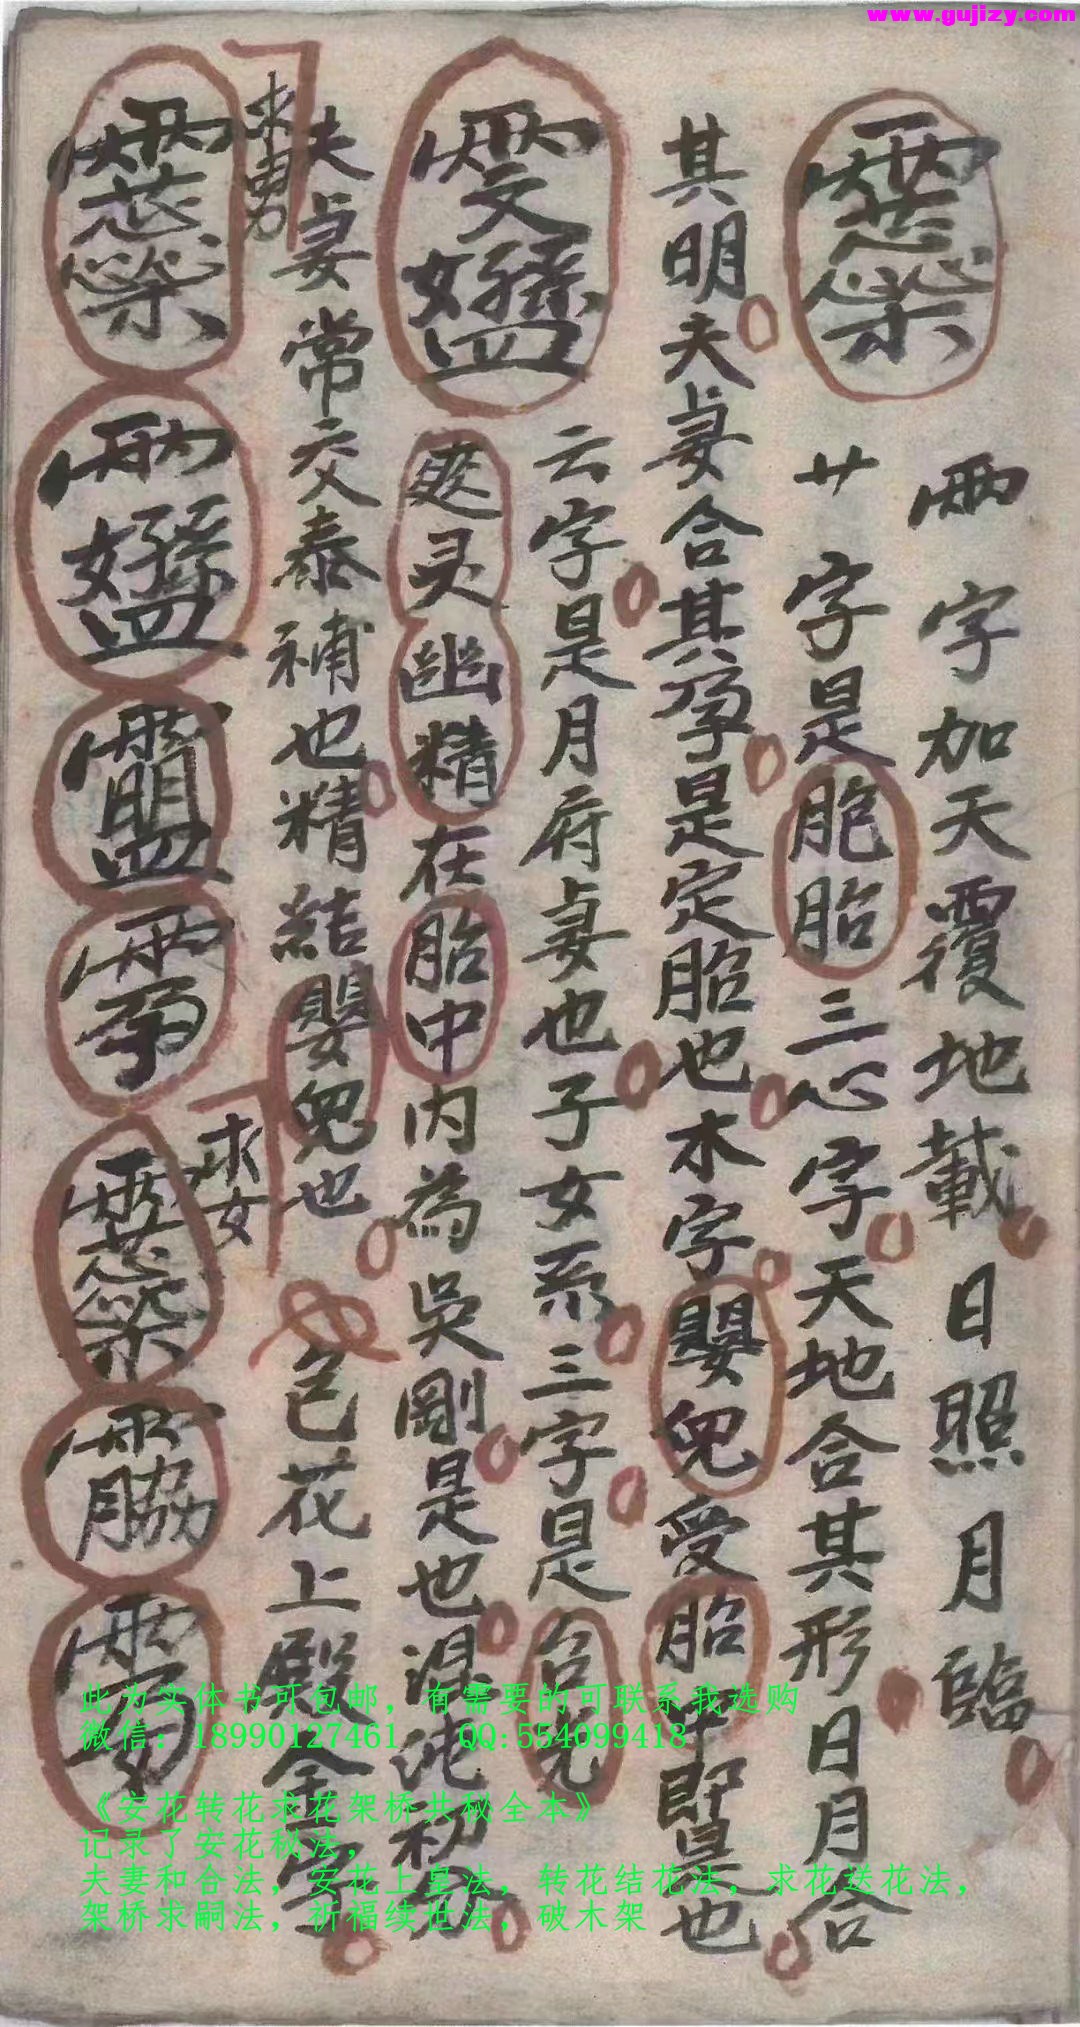 www.gujizy.com
雨字加天覆地載日照月臨
廿字是胞胎三心字天地合其形日月合
其明夫妻合其孕是定胎也木字嬰兒受胎中即是也
云字是月府妻也子女系三字是台光
爽灵幽精在胎中内為吳剛是也混沌初分
夫妻常交泰補也精結嬰兒也
色花上殿金字
求男
求女
此为实体书可包邮，有需要的可联系我选购
微信：18990127461， QQ:554099418
《安花转花求花架桥共秘全本》
记录了安花秘法，
夫妻和合法，安花上皇法，转花结花法，求花送花法，
架桥求嗣法，祈福续世法，破木架